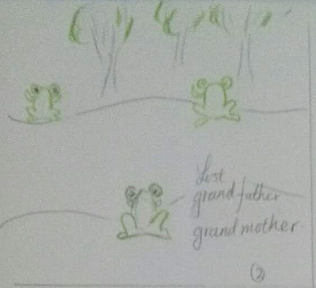 Lost
grandfather
grandmother
②